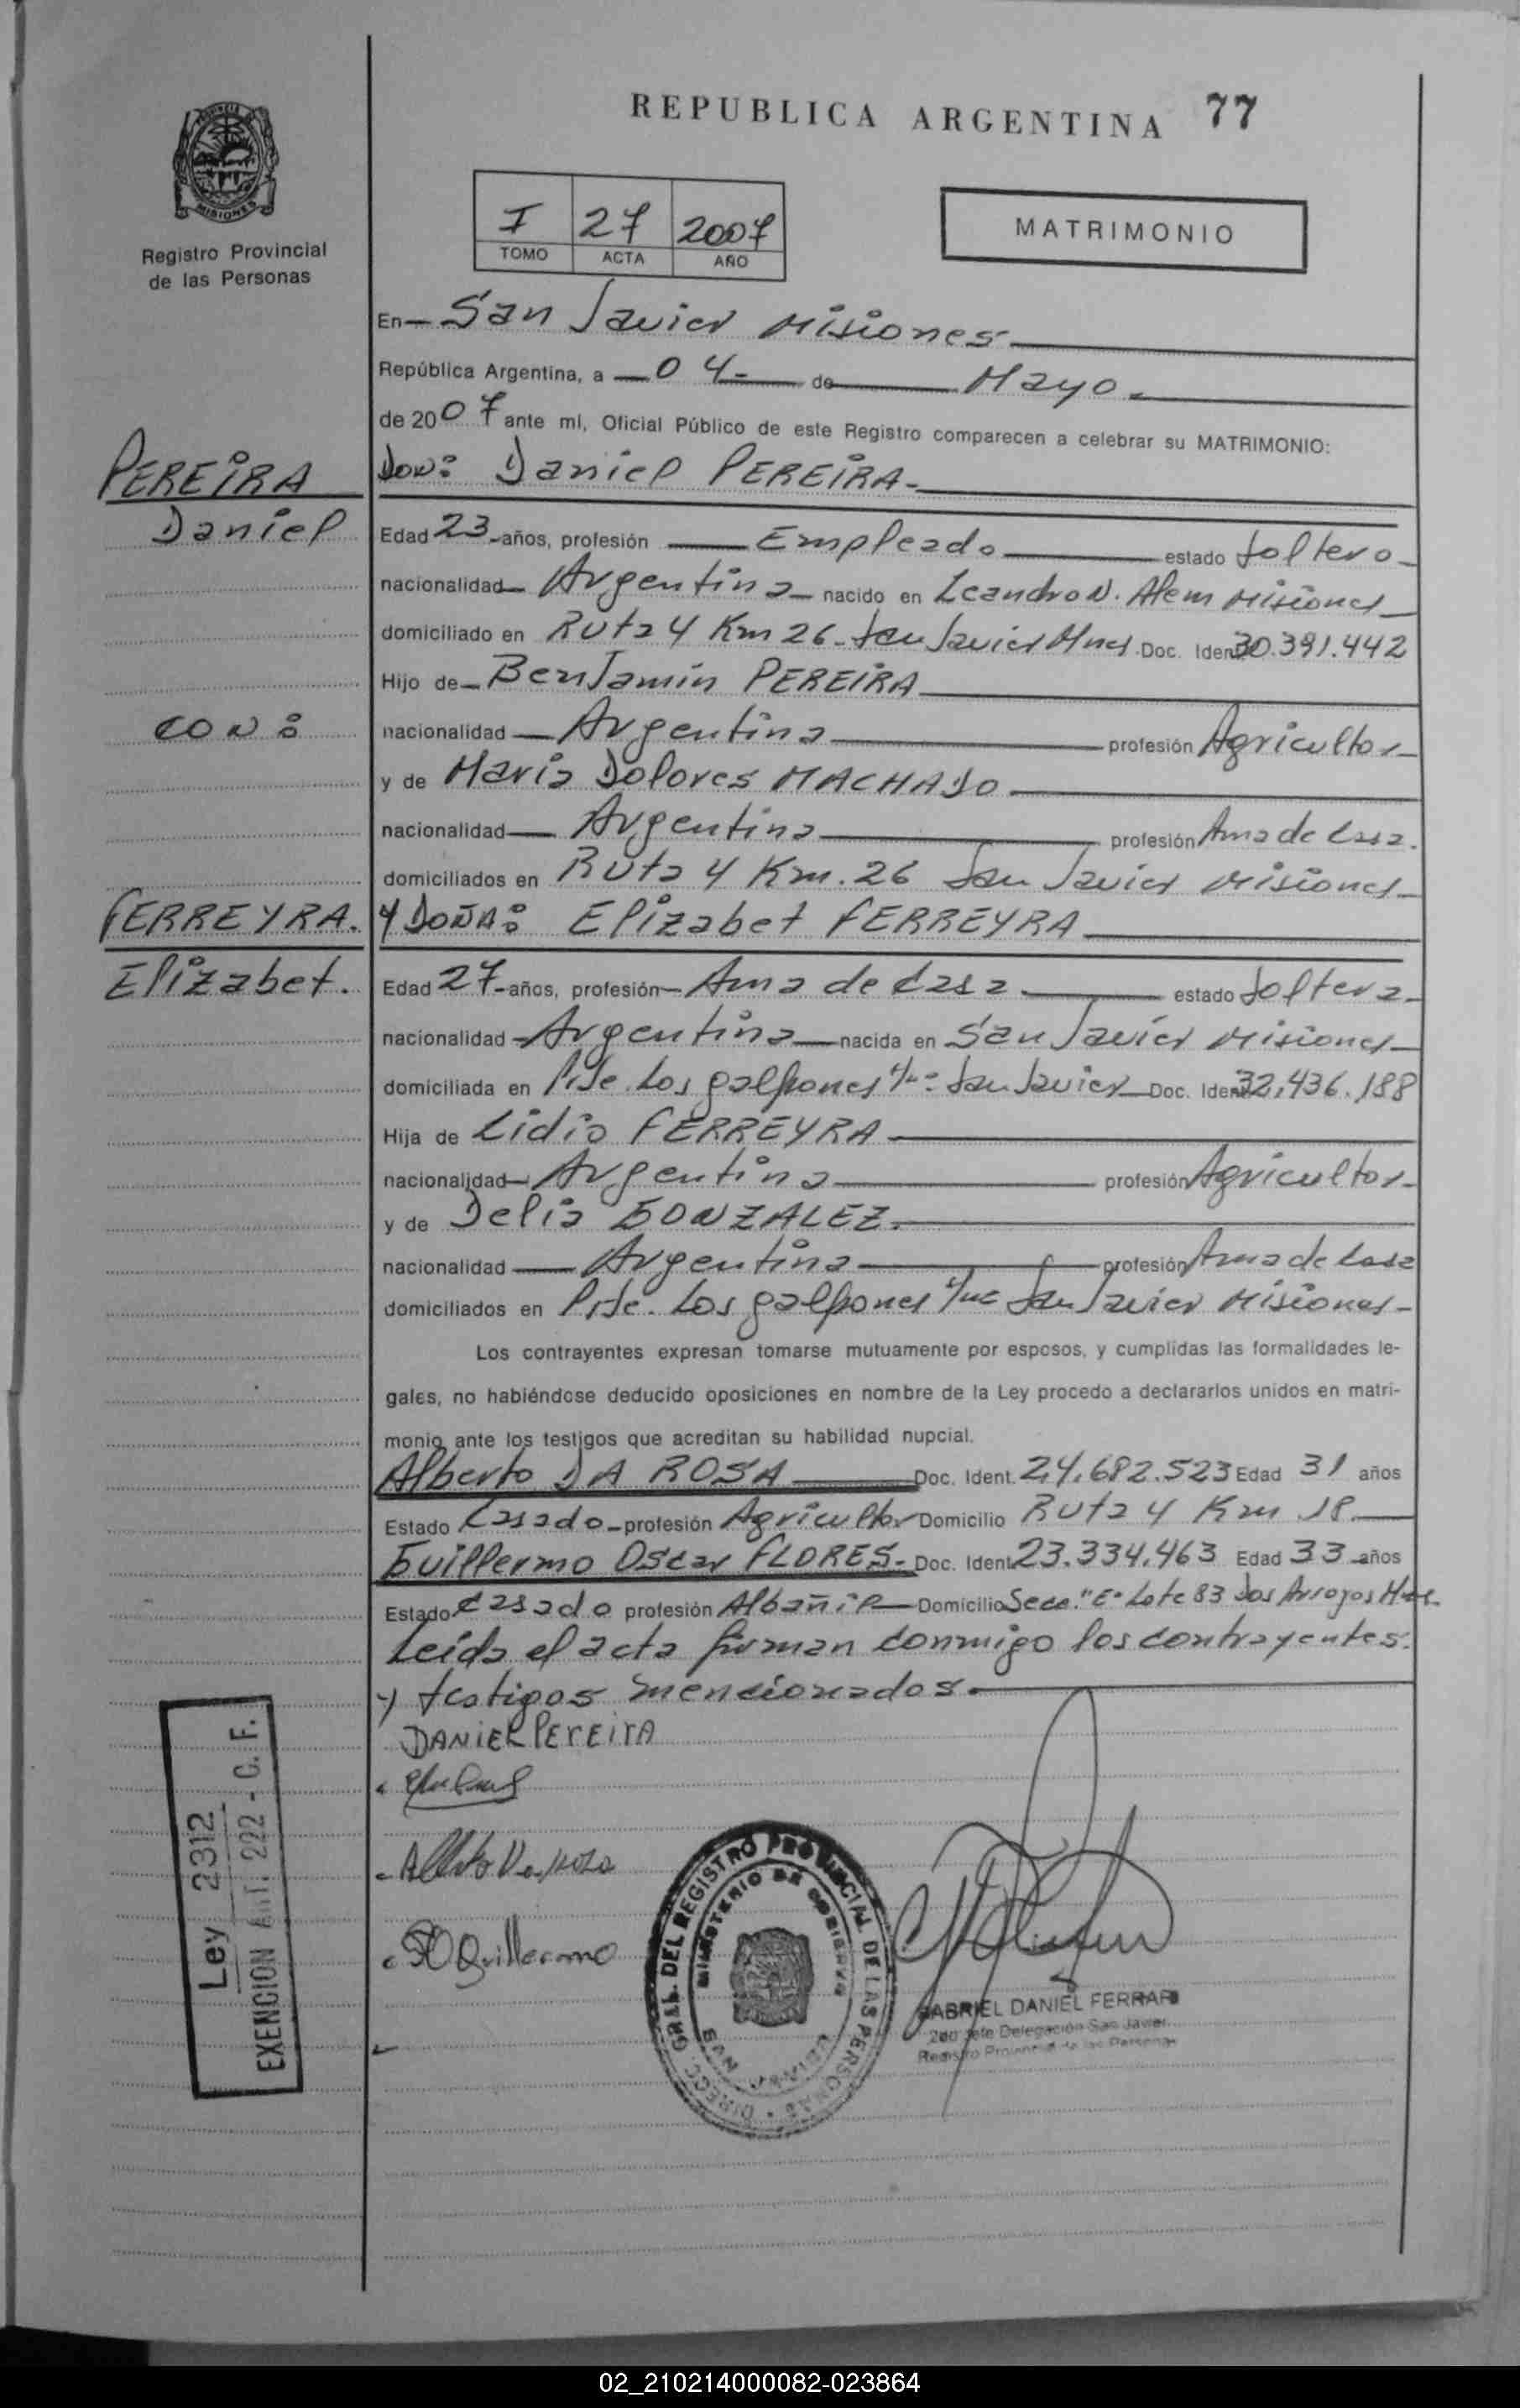 REPUBLICA ARGENTINA 77
MISIONES
Registro Provincial
de las Personas
I 27 2007
TOMO ACTA AÑO
MATRIMONIO
En San Javier Misiones
República Argentina, a 04 de Mayo
de 2007 ante mí, Oficial Público de este Registro comparecen a celebrar su MATRIMONIO:
PEREIRA
Daniel
CON:
FERREYRA.
Elizabet.
DON: Daniel PEREIRA
Edad 23 años, profesión Empleado estado Soltero
nacionalidad Argentina nacido en Leandro N. Alem Misiones
domiciliado en Ruta 4 Km 26 San Javier Mnes. Doc. Ident. 30.391.442
Hijo de Benjamin PEREIRA
nacionalidad Argentina profesión Agricultor
y de Maria Dolores MACHADO
nacionalidad Argentina profesión Ama de Casa.
domiciliados en Ruta 4 Km. 26 San Javier Misiones
Y DOÑA: Elizabet FERREYRA
Edad 27 años, profesión Ama de Casa estado Soltera
nacionalidad Argentina nacida en San Javier Misiones
domiciliada en Pje. Los galpones San Javier Doc. Ident. 32.436.188
Hija de Lidio FERREYRA
nacionalidad Argentina profesión Agricultor
y de Delia GONZALEZ.
nacionalidad Argentina profesión Ama de Casa
domiciliados en Pje. Los galpones San Javier Misiones
Los contrayentes expresan tomarse mutuamente por esposos, y cumplidas las formalidades le-
gales, no habiéndose deducido oposiciones en nombre de la Ley procedo a declararlos unidos en matri-
monio ante los testigos que acreditan su habilidad nupcial.
Alberto DA ROSA Doc. Ident. 24.682.523 Edad 31 años
Estado Casado profesión Agricultor Domicilio Ruta 4 Km 18.
Guillermo Oscar FLORES Doc. Ident. 23.334.463 Edad 33 años
Estado Casado profesión Albañil Domicilio Secc. "E" Lote 83 Dos Arroyos
Leida el acta firman conmigo los contrayentes
y testigos mencionados.
DANIEL PEREIRA
Alberto Da Rosa
Guillermo
Ley 2312
EXENCION ART. 222 - C. F.
DIRECC. GRAL. DEL REGISTRO PROVINCIAL DE LAS PERSONAS
MINISTERIO DE GOBIERNO
SAN JAVIER
GABRIEL DANIEL FERRARI
2do Jefe Delegación San Javier
Registro Provincial de las Personas
02_210214000082-023864